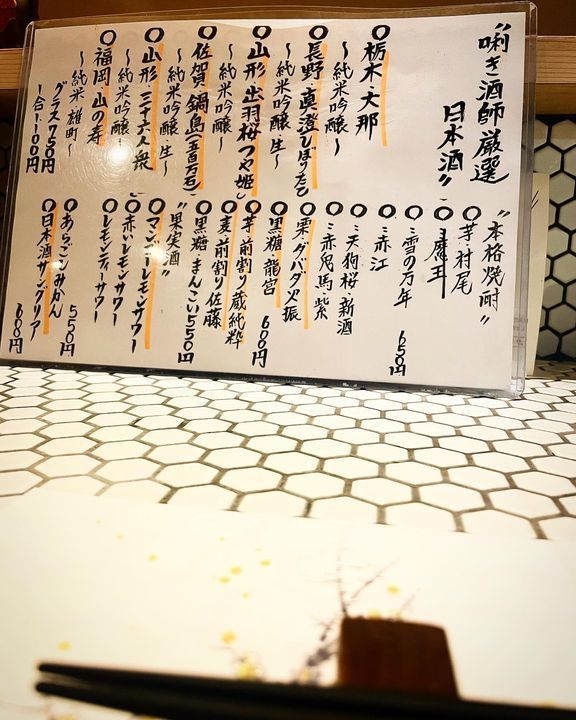 "唎き酒師厳選
日本酒"
○栃木・大那
〜純米吟醸〜
○長野・真澄しぼりたて
〜純米吟醸 生〜
○山形・出羽桜つや姫
〜純米吟醸〜
○佐賀・鍋島(五百万石)
〜純米吟醸 生〜
○山形・三十六人衆
〜純米吟醸〜
○福岡・山の寿
〜純米 雄町〜
グラス750円
一合1100円
"本格焼酎"
○芋・村尾
○〃魔王
○〃雪の万年
○〃赤江 650円
○〃天狗桜・新酒
○〃赤兎馬・紫
○栗・ダバダ火振
○黒糖・龍宮 600円
○芋前割り蔵純粋
○麦前割り佐藤
○黒糖・まんこい550円
"果実酒"
○マンゴーレモンサワー
○赤いレモンサワー
○レモンティーサワー
○あらごしみかん 550円
○日本酒サングリア 600円